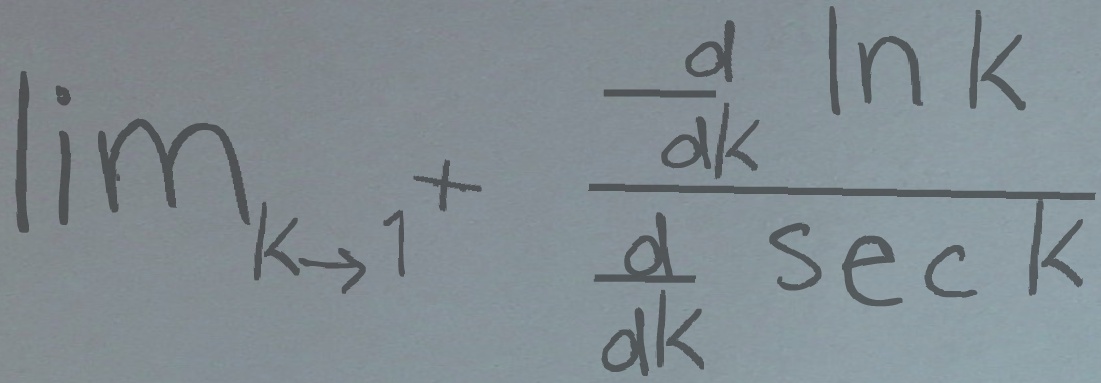 lim_{k→1^+} \frac{\frac{d}{dk} ln k}{\frac{d}{dk} sec k}